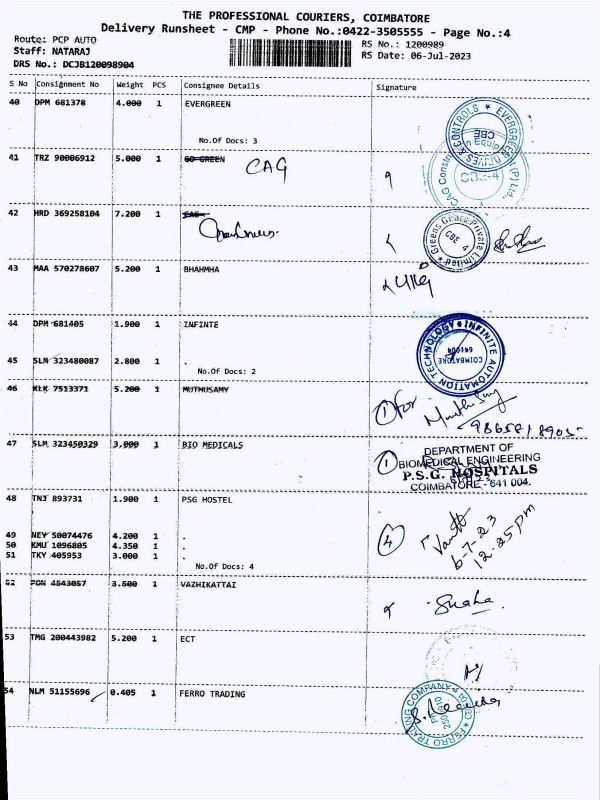 THE PROFESSIONAL COURIERS, COIMBATORE
Delivery Runsheet - CMP - Phone No.:0422-3505555 - Page No.:4
Route: PCP AUTO
RS No.: 1200989
Staff: NATARAJ
RS Date: 06-Jul-2023
DRS No.: DCJB120098904
S No Consignment No Weight PCS Consignee Details Signature
40 DPM 681378 4.000 1 EVERGREEN
No.Of Docs: 3
EVERGREEN DRIVES & CONTROLS
CBE
41 TRZ 90006912 5.000 1 GO GREEN
CAG
CAG Constru (P) Ltd.,
CBE-4
42 HRD 369258104 7.200 1 CAG
Greens Gears Private Limited
CBE 4
43 MAA 570278607 5.200 1 BHAHMHA
44 DPM 681405 1.900 1 INFINTE
INFINITE AUTOMATION TECHNOLOGY
COIMBATORE
641004
45 SLM 323480087 2.800 1
No.Of Docs: 2
46 KLK 7513371 5.200 1 MUTHUSAMY
1 For
47 SLM 323450329 3.000 1 BIO MEDICALS
1
DEPARTMENT OF
BIOMEDICAL ENGINEERING
P.S.G. HOSPITALS
COIMBATORE - 641 004.
48 TNJ 893731 1.900 1 PSG HOSTEL
49 NEY 50074476 4.200 1 .
50 KMU 1096805 4.350 1 .
51 TKY 405953 3.000 1 .
No.Of Docs: 4
4
6-7-23
12-25pm
52 PON 4543057 3.500 1 VAZHIKATTAI
53 TMG 200443982 5.200 1 ECT
54 NLM 51155696 0.405 1 FERRO TRADING
FERRO TRADING COMPANY